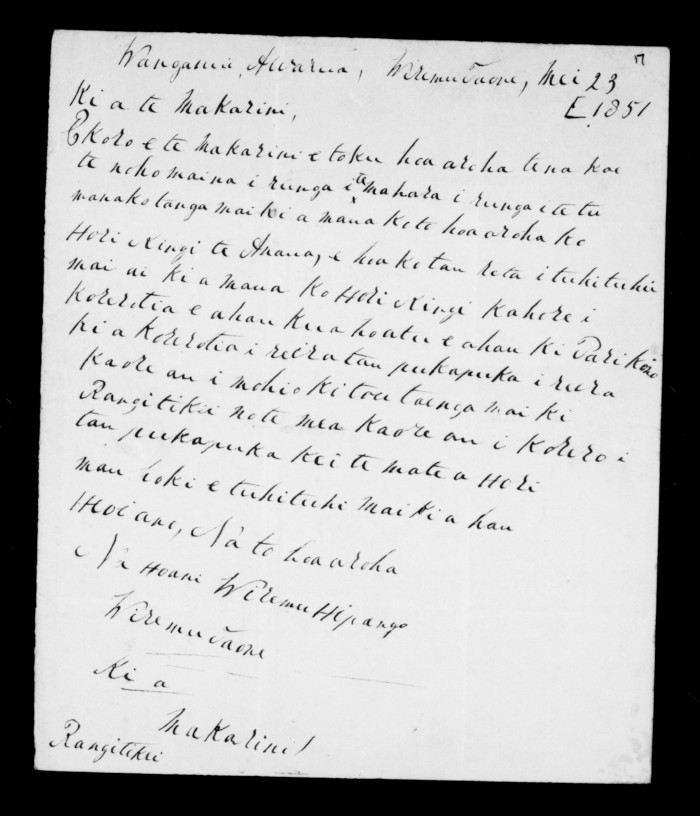 Wanganui, Awarua, Wiremu Taone, Mei 23
1851
Ki a te Makarini,
E koro e te Makarini e toku hoa aroha tena koe
te noho maina i runga i te mahara i runga i te tu
manako tanga mai ki a maua ko to hoa aroha ko
Hori Kingi te Anaua, e hoa ko tau reta i tuhituhi
mai ai ki a maua ko Hori Kingi kahore i
korerotia e ahau kua hoatu e ahau ki Pari koro
ki a korerotia i reira tau pukapuka i reira
kaore au i mohio ki tou taenga mai ki
Rangitikei no te mea kaore au i korero i
tau pukapuka kei te mate a Hori
mau hoki e tuhituhi mai ki a hau
Heoi ano, Na to hoa aroha
Na Hoani Wiremu Hipango
Wiremu Taone
Ki a
Makarini
Rangitikei